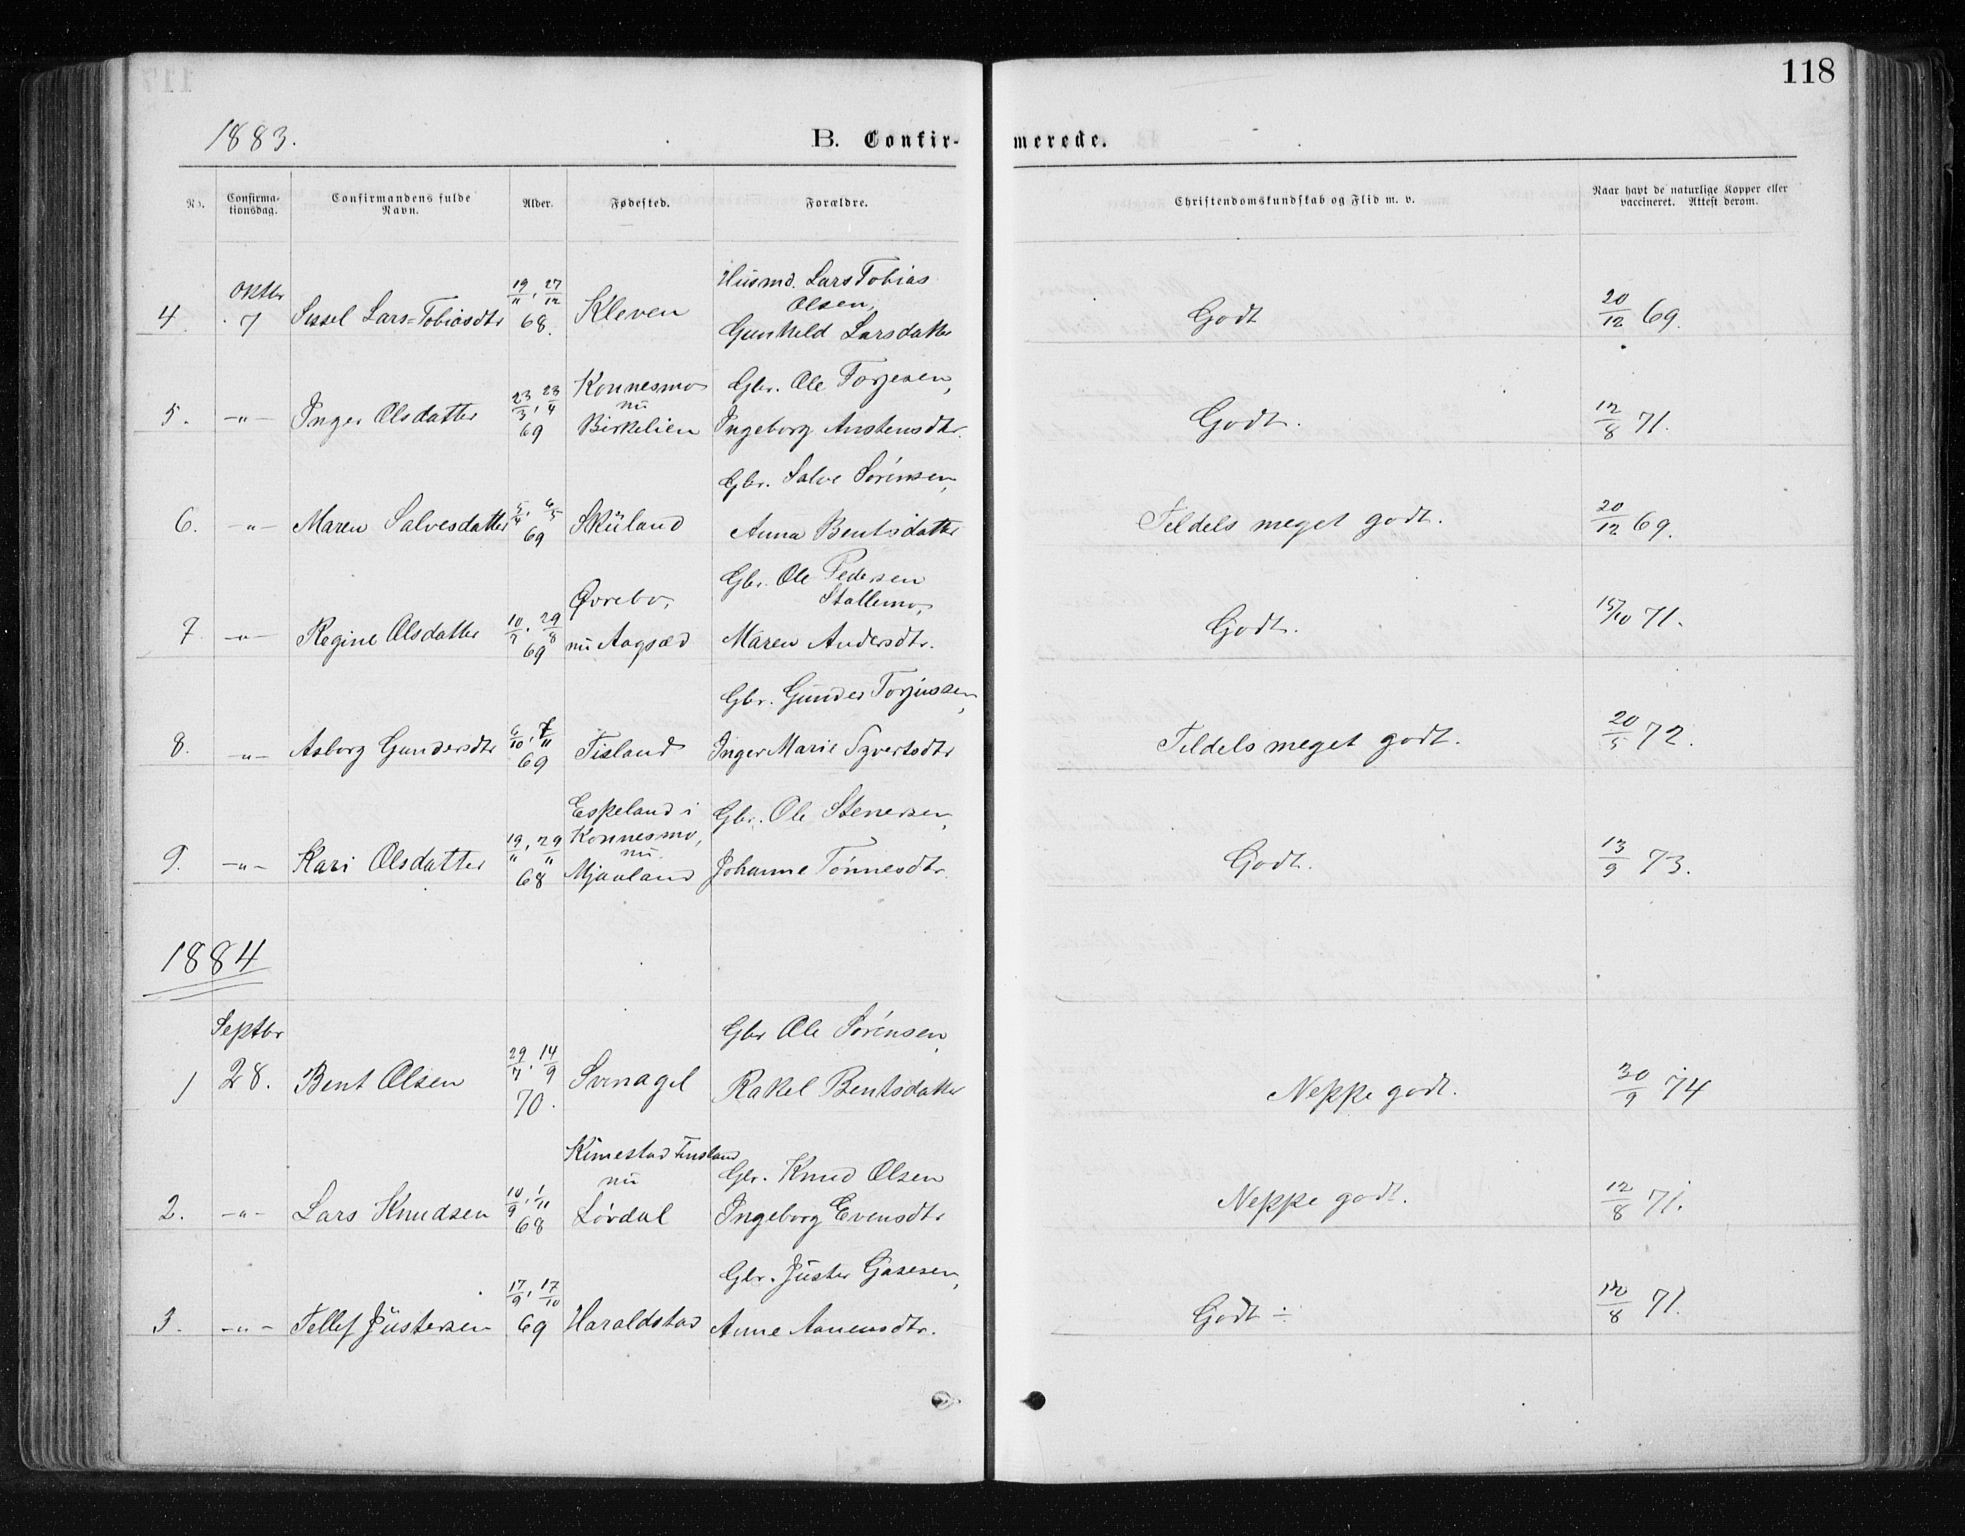 118
1883. B. Confirmerede.
No. Confirmationsdag. Confirmandens fulde Navn. Alder. Fødested. Forældre. Christendomskundskab og Flid m. v. Naar havt de naturlige Kopper eller vaccineret. Attest derom.
Oktbr 19/11, 27/12 Husmd. Lars Tobias
Olsen,
4. 7 Sissel Lars=Tobiasdtr 68. Kleven Gunhild Larsdatter Godt 20/12 69.
Konnesmo Gbr. Ole Torjesen,
23/3, 23/4 nu
5. -„- Inger Olsdatter 69 Birkelien Ingeborg Anstensdtr. Godt. 12/8 71.
Gbr. Salve Sörensen,
6. -„- Maren Salvesdatter 5/4, 6/5 69 Skuland Anna Bentsdatter Tildels meget godt. 20/12 69.
Gbr. Ole Pedersen
Øvrebo, Stallemo,
7. -„- Regine Olsdatter 10/7, 29/8 69 nu Aagsæd Maren Andersdtr. Godt. 15/10 71.
Gbr. Gunder Torjussen,
8. -„- Asborg Gundersdtr 6/10, 7/11 69 Tisland Inger Marie Syvertsdtr Tildels meget godt. 20/5 72.
Espeland i Gbr. Ole Stenersen,
Konnesmo,
nu
9. -„- Kari Olsdatter 19/11, 29/11 68 Mjaaland Johanne Tönnesdtr. Godt. 13/9 73.
1884
Septbr Gbr Ole Sörensen,
1 28. Bent Olsen 29/7, 14/9 70. Svinagel Rakel Bentsdatter Neppe godt. 30/9 74
Kimestad Finsland Gbr. Knud Olsen
nu
2. -„- Lars Knudsen 10/9, 1/11 68 Lövdal Ingeborg Evensdtr Neppe godt. 12/8 71.
Gbr. Juster Gasesen,
3. -„- Tellef Justersen 17/9, 17/10 69 Haraldstad Anne Aanensdtr. Godt ÷ 12/8 71.